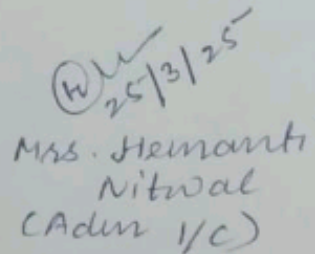 25/3/25
Mrs. Hemanti
Nitwal
(Admn I/C)